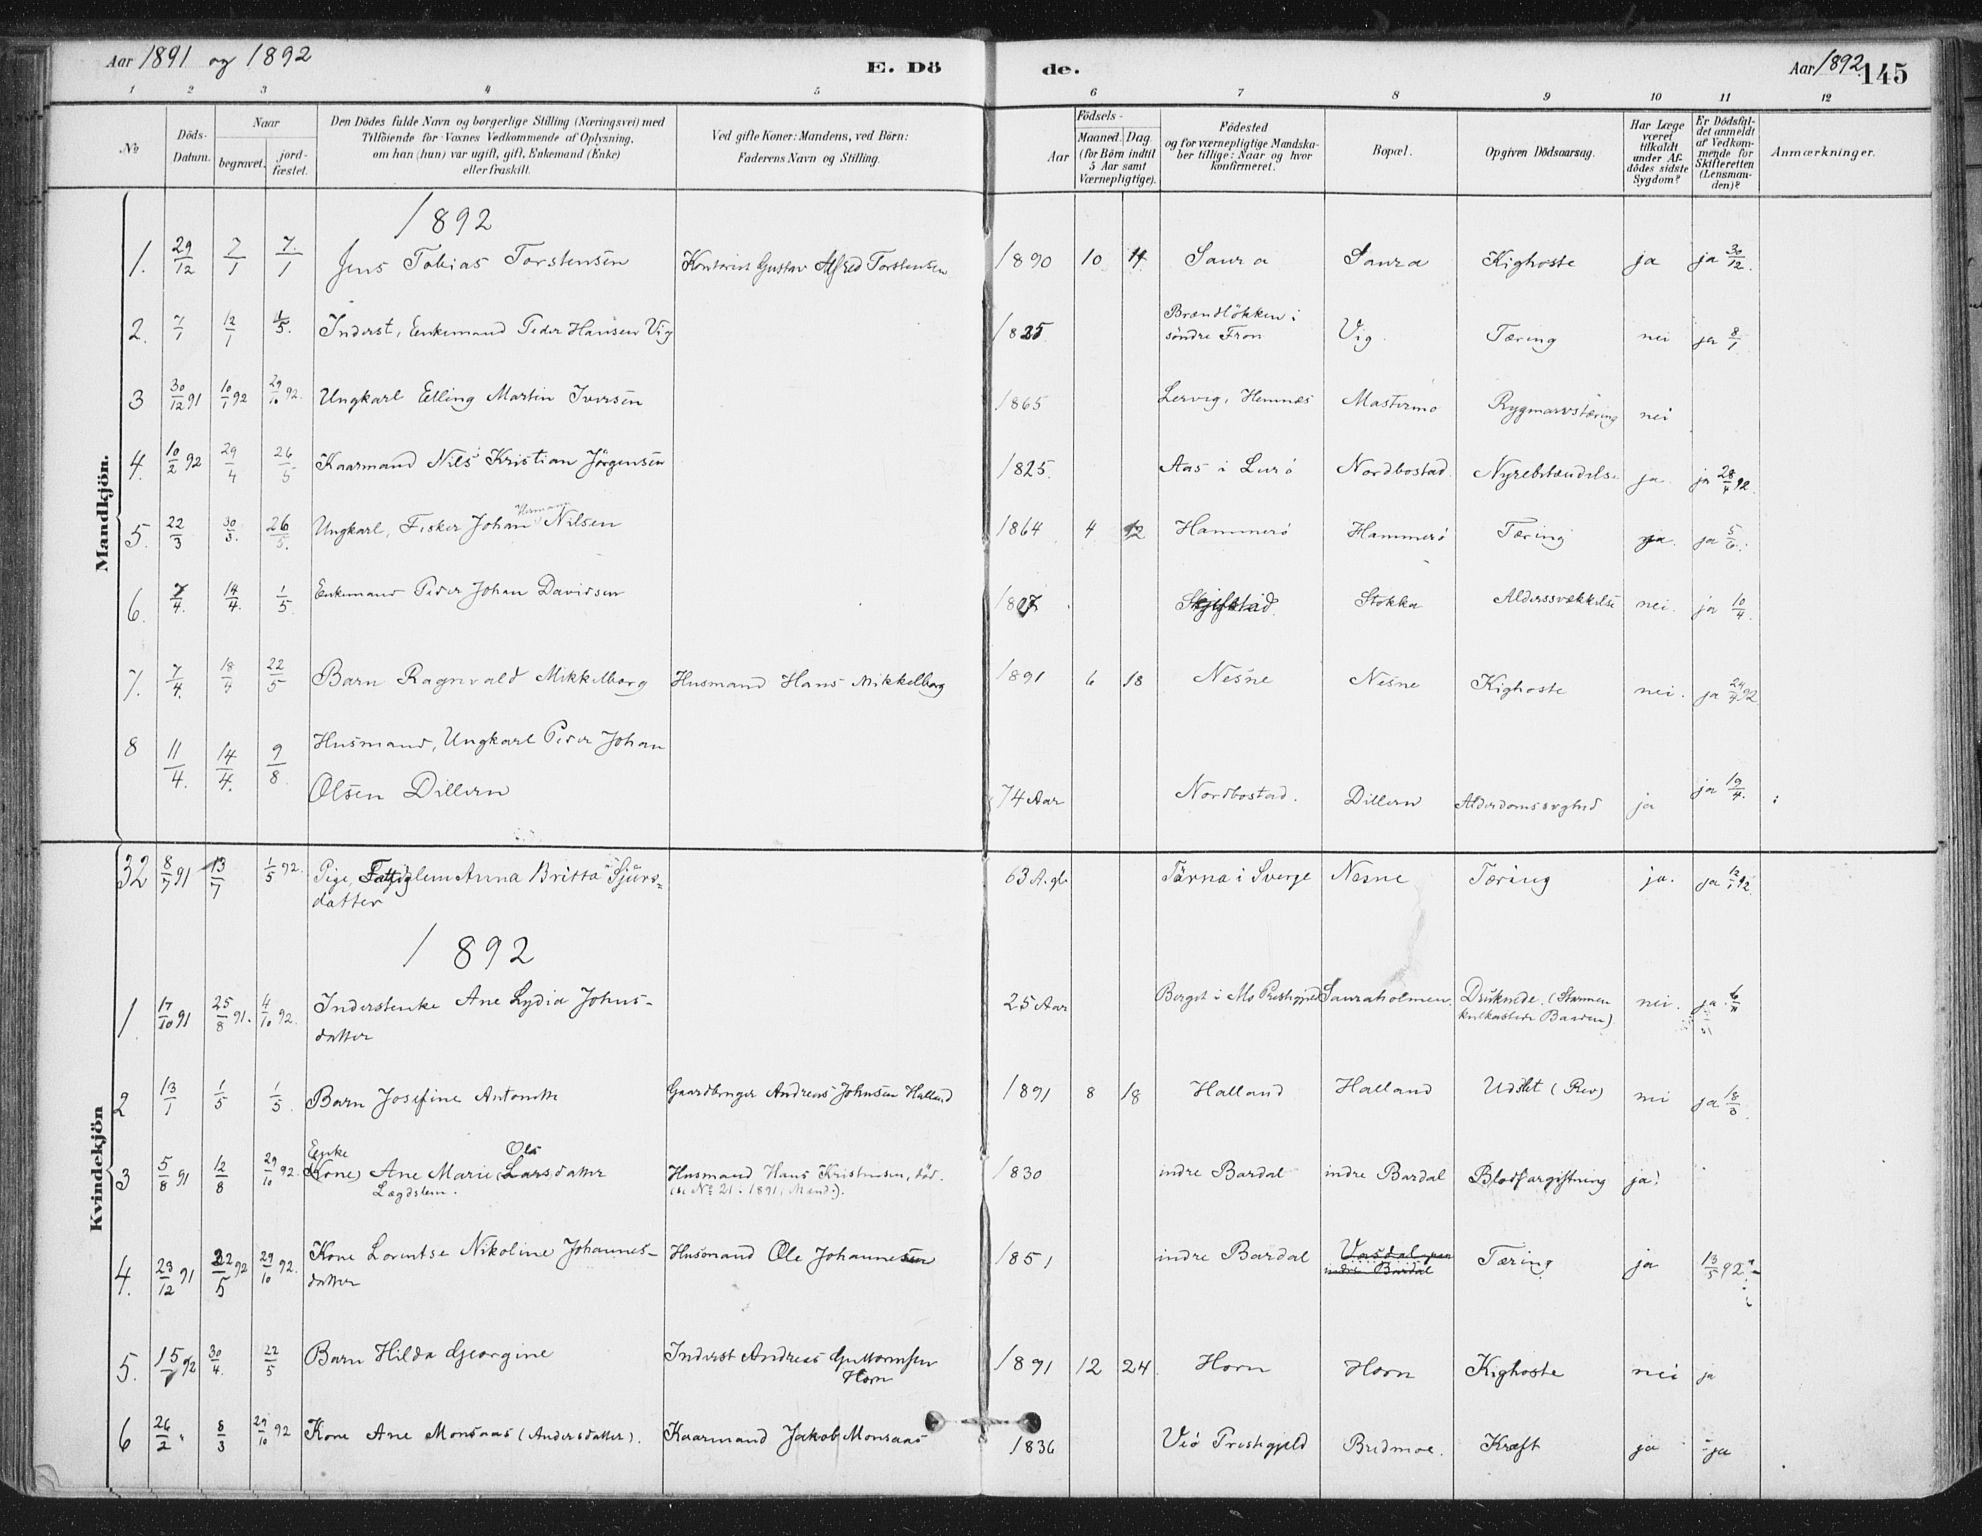 Aar 1891 og 1892 E. Dö de. Aar 1892 145
1 2 3 4 5 6 7 8 9 10 11 12
№ Döds-Datum. Naar begravet. jord-fæstet.
Den Dödes fulde Navn og borgerlige Stilling (Næringsvei) med
Tilföiende for Voxnes Vedkommende af Oplysning,
om han (hun) var ugift, gift, Enkemand (Enke)
eller fraskilt.
Ved gifte Koner: Mandens, ved Börn:
Faderens Navn og Stilling.
Födsels-
Aar Maaned. Dag.
(for Börn indtil 5 Aar samt Værnepligtige).
Födested
og for værnepligtige Mandska-
ber tillige: Naar og hvor
konfirmeret.
Bopæl.
Opgiven Dödsaarsag.
Har Læge været tilkaldt under Af-dödes sidste Sygdom?
Er Dödsfal-det anmeldt af Vedkom-mende for Skifteretten (Lensman-den)?
Anmærkninger.
Mandkjön.
1892
1. 29/12 2/1 7/1 Jens Tobias Torstensen Kontorist Gustav Alfred Torstensen 1890 10 4 Saura Saura Kighoste ja ja 30/12.
2. 7/1 12/1 1/5. Inderst, Enkemand Peder Hansen Vig 1825 Brændlökken i
söndre Fron Vig Tæring nei ja 8/1
3 30/12 91 10/1 92 29/10 92. Ungkarl Elling Martin Iversen 1865 Lervig, Hemnæs Mastermo Rygmarvstæring nei
4. 10/2 92 29/4 26/5 Kaarmand Nils Kristian Jörgensen 1825. Aas i Lurö Nordbostad Nyrebetændelse ja ja 28/4 92.
5. 22/3 30/3. 26/5. Ungkarl, Fisker Johan Herman Nilsen 1864 4 12 Hammerö Hammerö Tæring ja. ja 5/6.
6. 7/4. 14/4. 1/5 Enkemand Peder Johan Davidsen 1807 Stokka Alderssvækkelse nei. ja 10/4.
7. 7/4. 18/4 22/5 Barn Ragnvald Mikkelborg Husmand Hans Mikkelborg 1891 6 18 Nesne Nesne Kighoste nei. ja 24/4 92
8 11/4. 14/4. 9/8. Husmand, Ungkarl Peder Johan
Olsen Dillern 74 Aar Nordbostad. Dillern Alderdomssvghed ja ja 19/4.
Kvindekjön
32 8/7 91 13/7 1/5 92. Pige, Fattiglem Anna Britta Sjurs-
datter 63 A. gl. Tärna i Sverge Nesne Tæring ja. ja 12/1 92.
1892
1. 17/10 91 25/8 91. 4/10 92. Inderstenke Ane Lydia Johns-
datter 25 Aar Berget i Mo Prestegjeld Sauraholmen Druknede. (Stormen
kulkastede Baaden) nei. ja 6/11
2 13/1 1/5 1/5. Barn Josefine Antonette Gaardbruger Andreas Johnsen Halland 1891 8 18 Halland Halland Udslet (Rev) nei ja 18/3.
3 5/8 91 12/8 29/10 92. Enke
(Kone) Ane Marie Ols (Lars)datter
Lægdslem. Husmand Hans Kristensen, död.
(se No 21. 1891, Mand.). 1830 indre Bardal indre Bardal Blodforgiftning ja.
4. 23/12 91 22/5 92 29/10 92. Kone Lorentse Nikoline Johannes-
datter Husmand Ole Johannesen 1851 indre Bardal indre Bardal Tæring ja 13/5 92.
5. 15/ 92 30/4. 22/5 Barn Hilda Georgine Inderst Andreas Guttormsen
Horn 1891 12 24 Horn Horn Kighoste nei ja
6 26/2 " 8/3 29/10 92 Kone Ane Monsaas (Andersdatter). Kaarmand Jakob Monsaas 1836 Viö Prestegjeld Bredmoe. Kræft ja ja